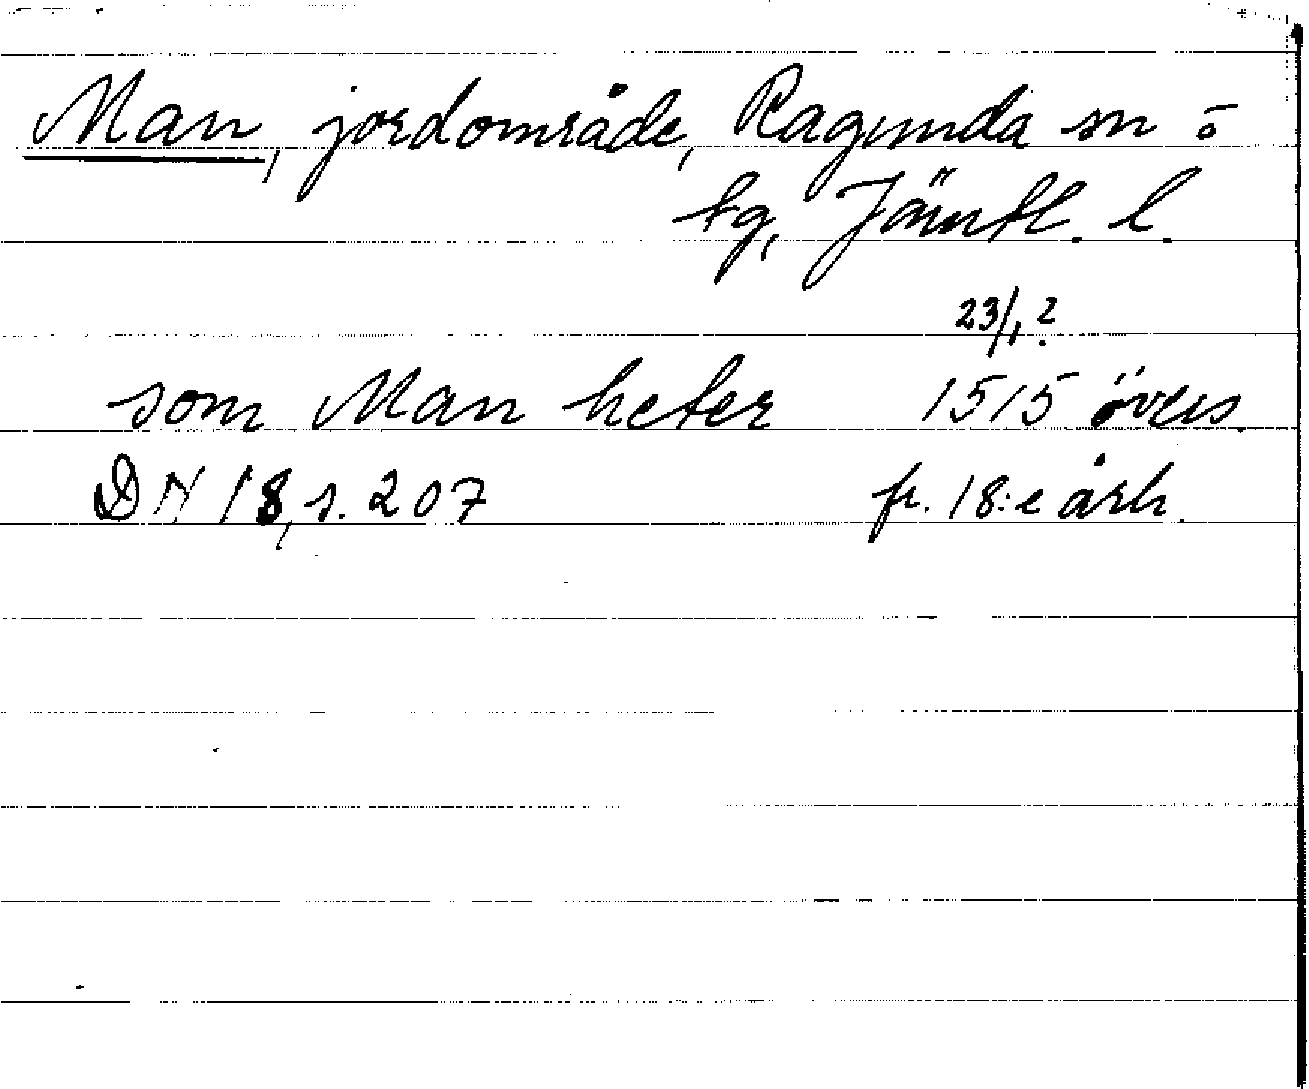 Man, jordområde, Ragunda sn o
tg, Jämtl. l.
23/1 ?
som Man heter 1515 övers.
DN 18, s. 207 fr. 18:e årh.